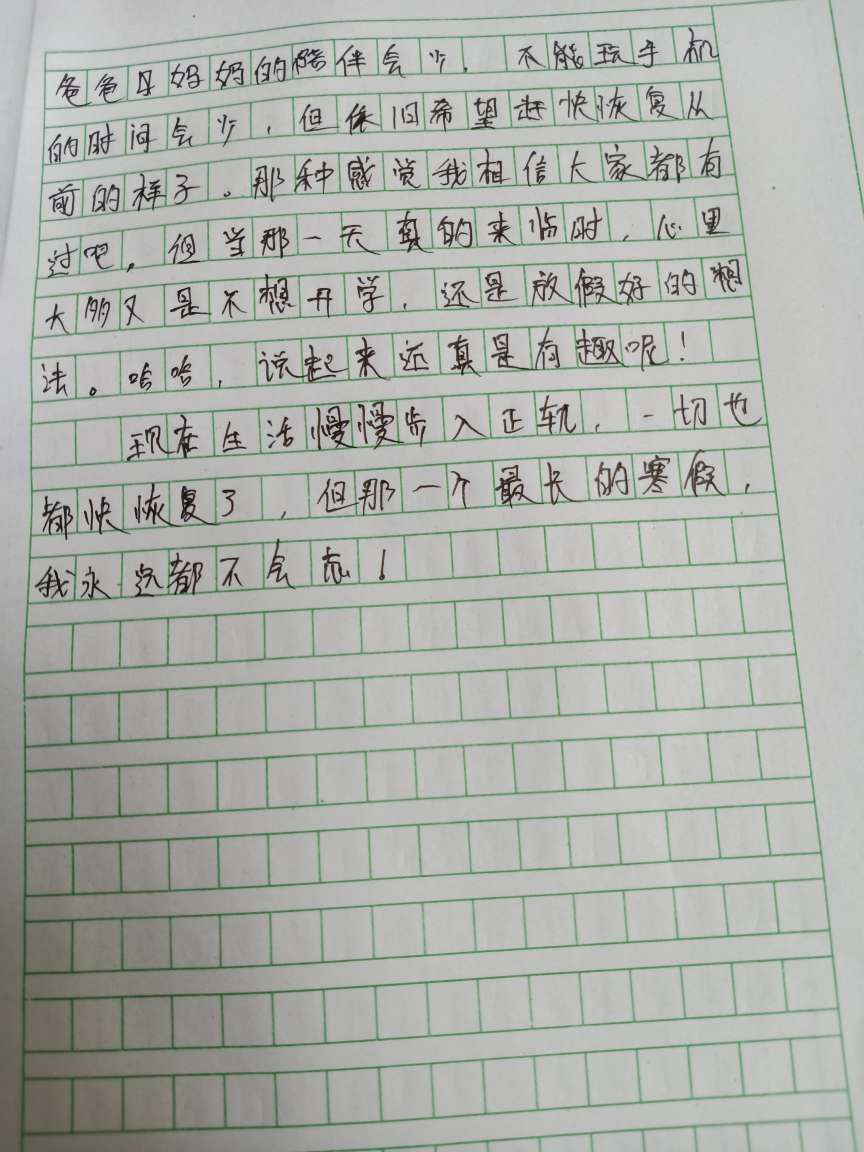 爸爸妈妈的陪伴会少，不能玩手机
的时间会少，但依旧希望赶快恢复从
前的样子。那种感觉我相信大家都有
过吧，但当那一天真的来临时，心里
大多又是不想开学，还是放假好的想
法。哈哈，说起来还真是有趣呢！
现在生活慢慢步入正轨，一切也
都快恢复了，但那一个最长的寒假，
我永远都不会忘！